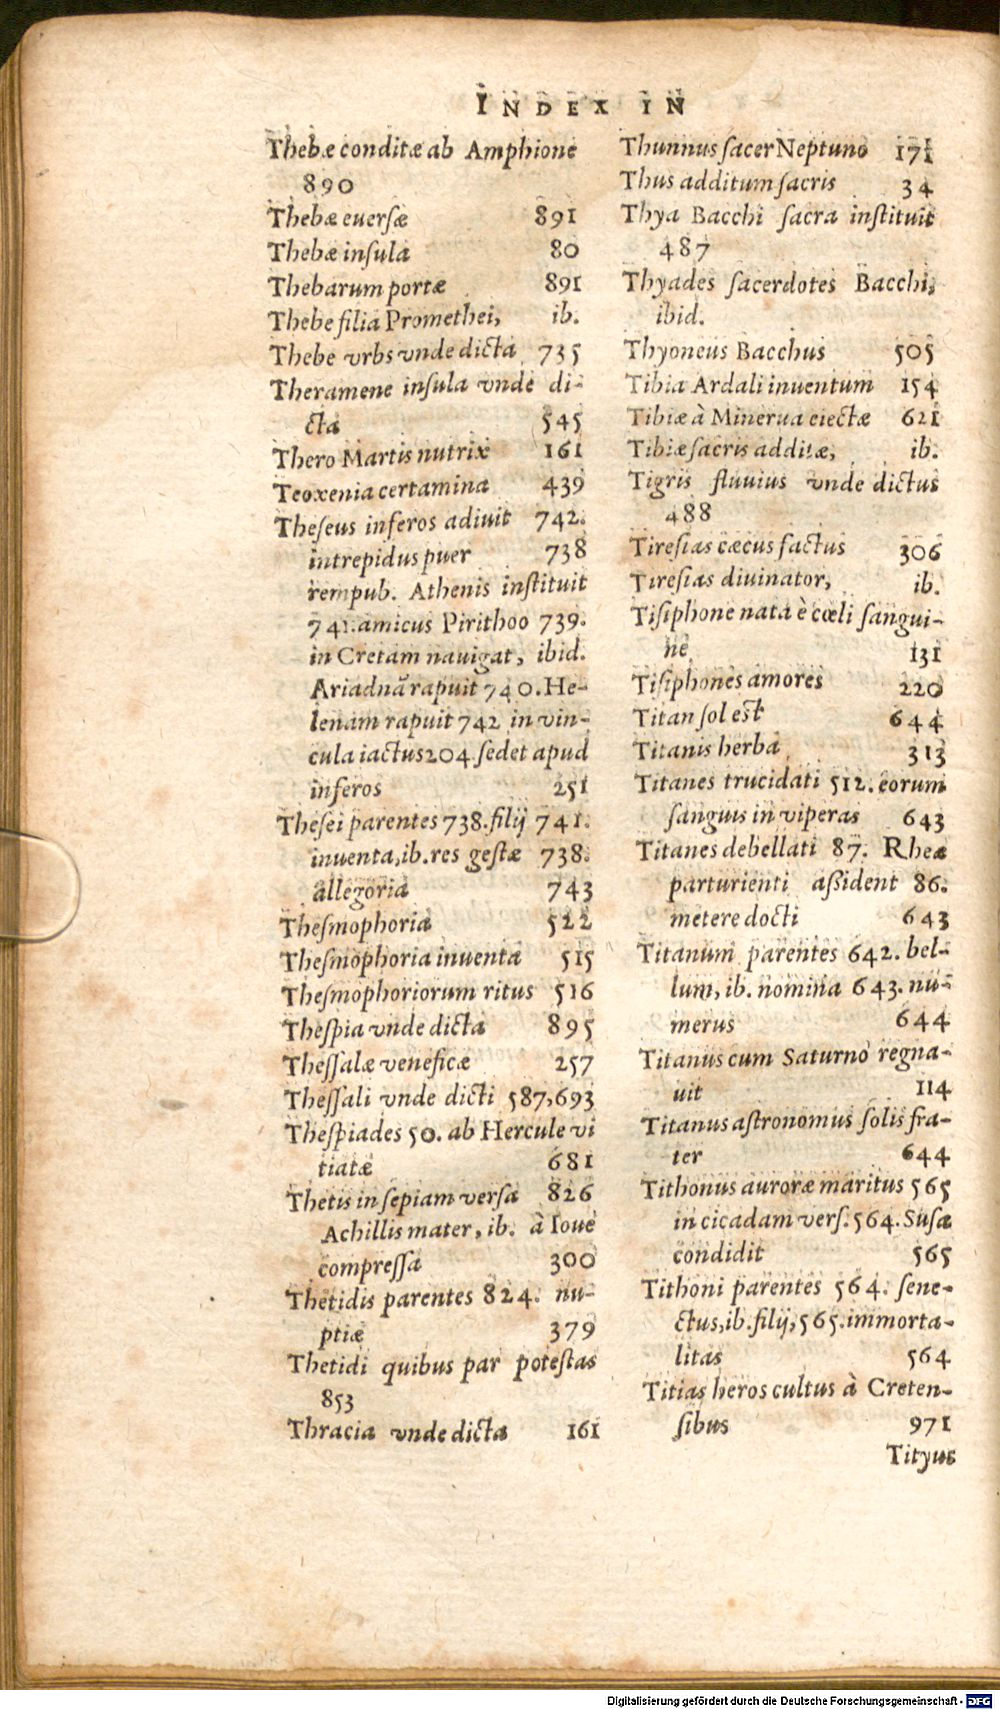 INDEX IN
Thebæ conditæ ab Amphione
890
Thebæ euerſæ 891
Thebæ inſula 80
Thebarum portæ 891
Thebe filia Promethei, ib.
Thebe vrbs vnde dicta 735
Theramene inſula vnde di-
cta 545
Thero Martis nutrix 161
Teoxenia certamina 439
Theſeus inferos adiuit 742.
intrepidus puer 738
rempub. Athenis inſtituit
741. amicus Pirithoo 739.
in Cretam nauigat, ibid.
Ariadnã rapuit 740. He-
lenam rapuit 742 in vin-
cula iactus 204. ſedet apud
inferos 251
Theſei parentes 738. filij 741.
inuenta, ib. res geſtæ 738.
allegoria 743
Theſmophoria 522
Theſmophoria inuenta 515
Theſmophoriorum ritus 516
Theſpia vnde dicta 895
Theſſalæ veneficæ 257
Theſſali vnde dicti 587,693
Theſpiades 50. ab Hercule vi
tiatæ 681
Thetis in ſepiam verſa 826
Achillis mater, ib. à Ioue
compreſſa 300
Thetidis parentes 824. nu-
ptiæ 379
Thetidi quibus par poteſtas
853
Thracia vnde dicta 161
Thunnus ſacer Neptuno 171
Thus additum ſacris 34
Thya Bacchi ſacra inſtituit
487
Thyades ſacerdotes Bacchi,
ibid.
Thyoneus Bacchus 505
Tibia Ardali inuentum 154
Tibiæ à Minerua eiectæ 621
Tibiæ ſacris additæ, ib.
Tigris fluuius vnde dictus
488
Tireſias cæcus factus 306
Tireſias diuinator, ib.
Tiſiphone nata è cœli ſangui-
ne 131
Tiſiphones amores 220
Titan ſol eſt 644
Titanis herba 313
Titanes trucidati 512. eorum
ſanguis in viperas 643
Titanes debellati 87. Rheæ
parturienti aſſident 86.
metere docti 643
Titanum parentes 642. bel-
lum, ib. nomina 643. nu-
merus 644
Titanus cum Saturno regna-
uit 114
Titanus aſtronomus ſolis fra-
ter 644
Tithonus auroræ maritus 565
in cicadam verſ. 564. Suſæ
condidit 565
Tithoni parentes 564. ſene-
ctus, ib. filij, 565. immorta-
litas 564
Titias heros cultus à Creten-
ſibus 971
Tityus
Digitalisierung gefördert durch die Deutsche Forschungsgemeinschaft - DFG